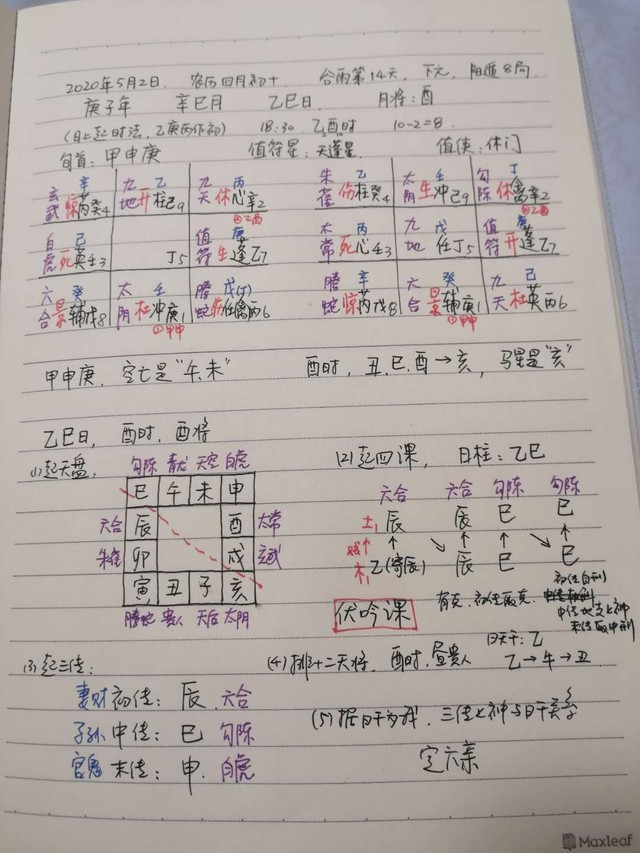 2020年5月2日. 农历四月初十 谷雨第14天, 下元, 阳遁8局.
庚子年 辛巳月 乙巳日, 月将: 酉
(日上起时法, 乙庚丙作初) 18:30, 乙酉时 10-2=8.
旬首: 甲申庚 值符星: 天蓬星. 值使: 休门
玄 辛 九 乙 九 丙 朱 乙 太 壬 勾 丁
武 惊芮癸4 地 开柱己9 天 休心辛2 雀 伤柱癸4 阴 生冲己9 陈 休禽辛2
②乙酉 ②乙酉
白 己 值 庚 太 丙 九 戊 值 庚
虎 死英壬3 丁5 符 生蓬乙7 常 死心壬3 地 任丁5 符 开蓬乙7
六 癸 太 壬 螣 戊(丁) 螣 辛 六 癸 九 己
合 景辅戊8 阴 杜冲庚1 蛇 伤任禽丙6 蛇 惊芮戊8 合 景辅庚1 天 杜英丙6
①甲申 ①甲申
甲申庚, 空亡是“午.未” 酉时, 丑.巳.酉→亥, 马星是“亥”
乙巳日, 酉时. 酉将
(1)起天盘. 勾陈 青龙 天空 白虎
巳 午 未 申
六合 辰 酉 太常
朱雀 卯 戌 玄武
寅 丑 子 亥
螣蛇 贵人 天后 太阴
(2)起四课, 日柱: 乙巳
六合 六合 勾陈 勾陈
土 辰 辰 巳 巳
贼↑ ↑ ↘ ↑ ↑ ↘ ↑
木 乙(寄辰) 辰 巳 巳
伏吟课
有克, 初传取克.
中传地支上神
末传取中刑
(3)起三传:
妻财 初传: 辰. 六合
子孙 中传: 巳 勾陈
官鬼 末传: 申. 白虎
(4)排十二天将, 酉时. 昼贵人
日天干: 乙
乙→午→丑
(5)据日干为我, 三传上神与日干关系
定六亲
Maxleaf